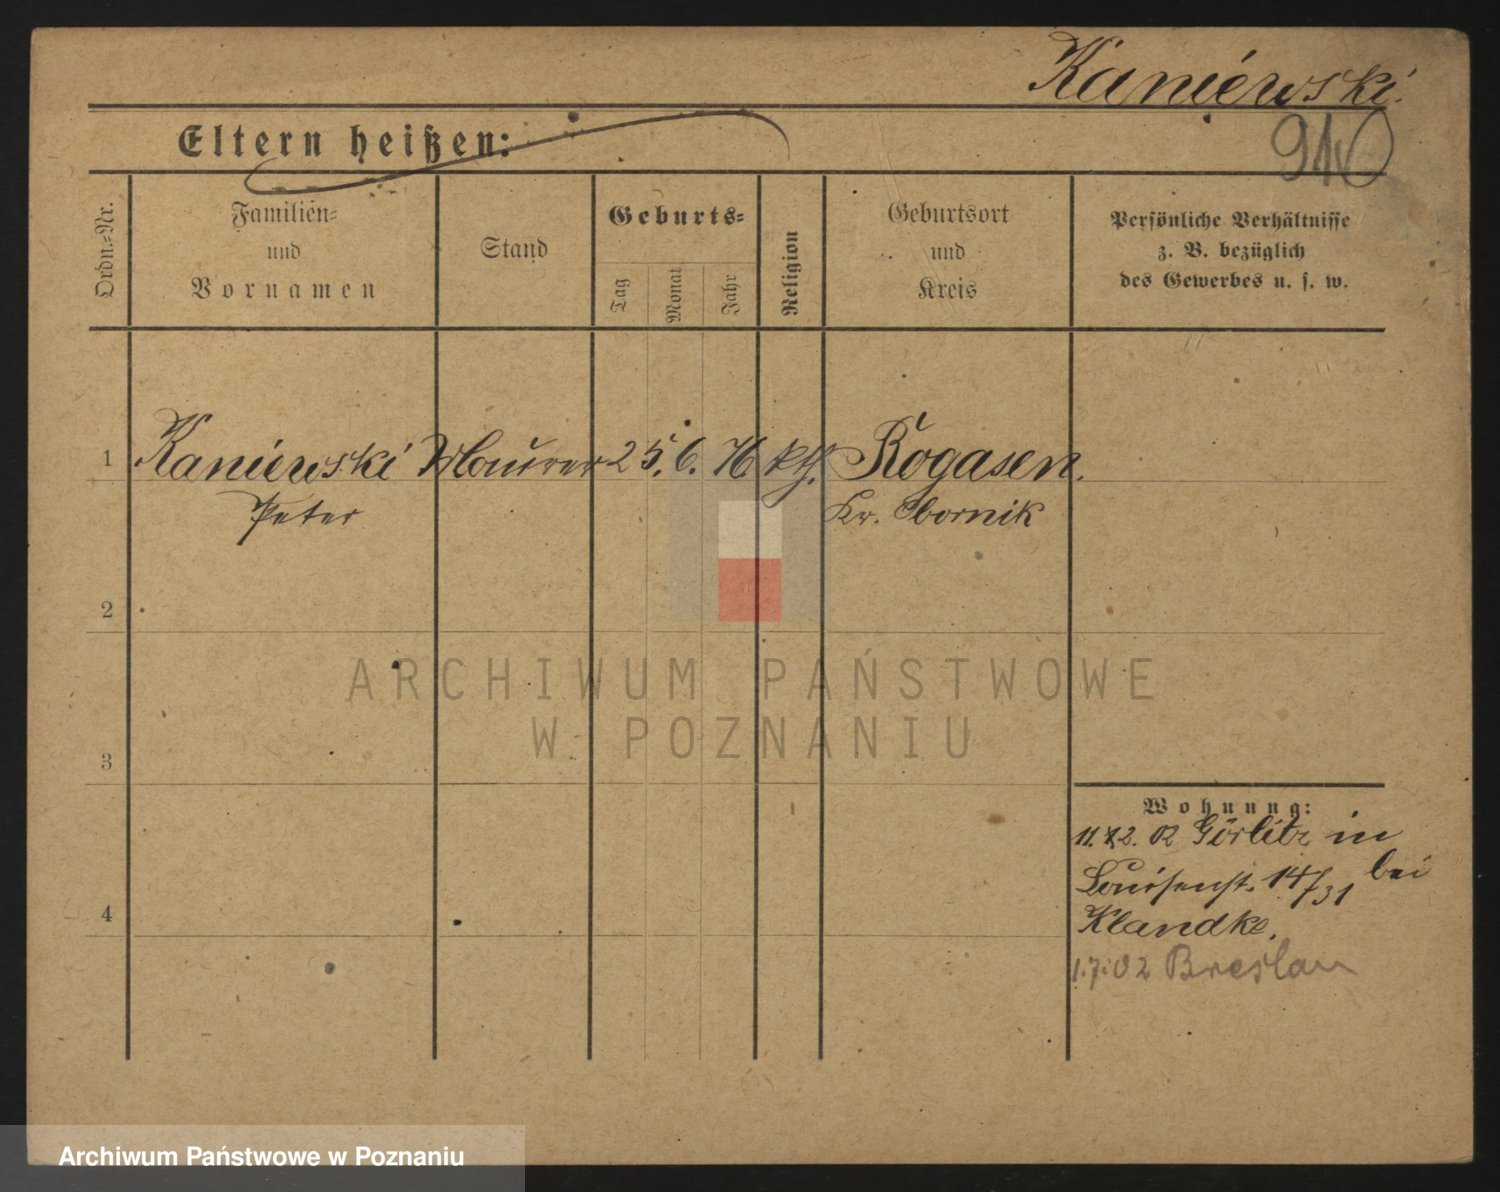 Kaniewski.
910
Eltern heißen:
Ordn.-Nr.
Familien-
und
Vornamen
Stand
Geburts-
Tag
Monat
Jahr
Religion
Geburtsort
und
Kreis
Persönliche Verhältnisse
z. B. bezüglich
des Gewerbes u. s. w.
1 Kaniewski Maurer 25. 6. 76 kth. Rogasen.
Peter Kr. Obornik
2
3
4
ARCHIWUM PAŃSTWOWE
W POZNANIU
Wohnung:
02 Görlitz in
Louisenst. 14/31 bei
Klandke.
1.7.02 Breslau
Archiwum Państwowe w Poznaniu